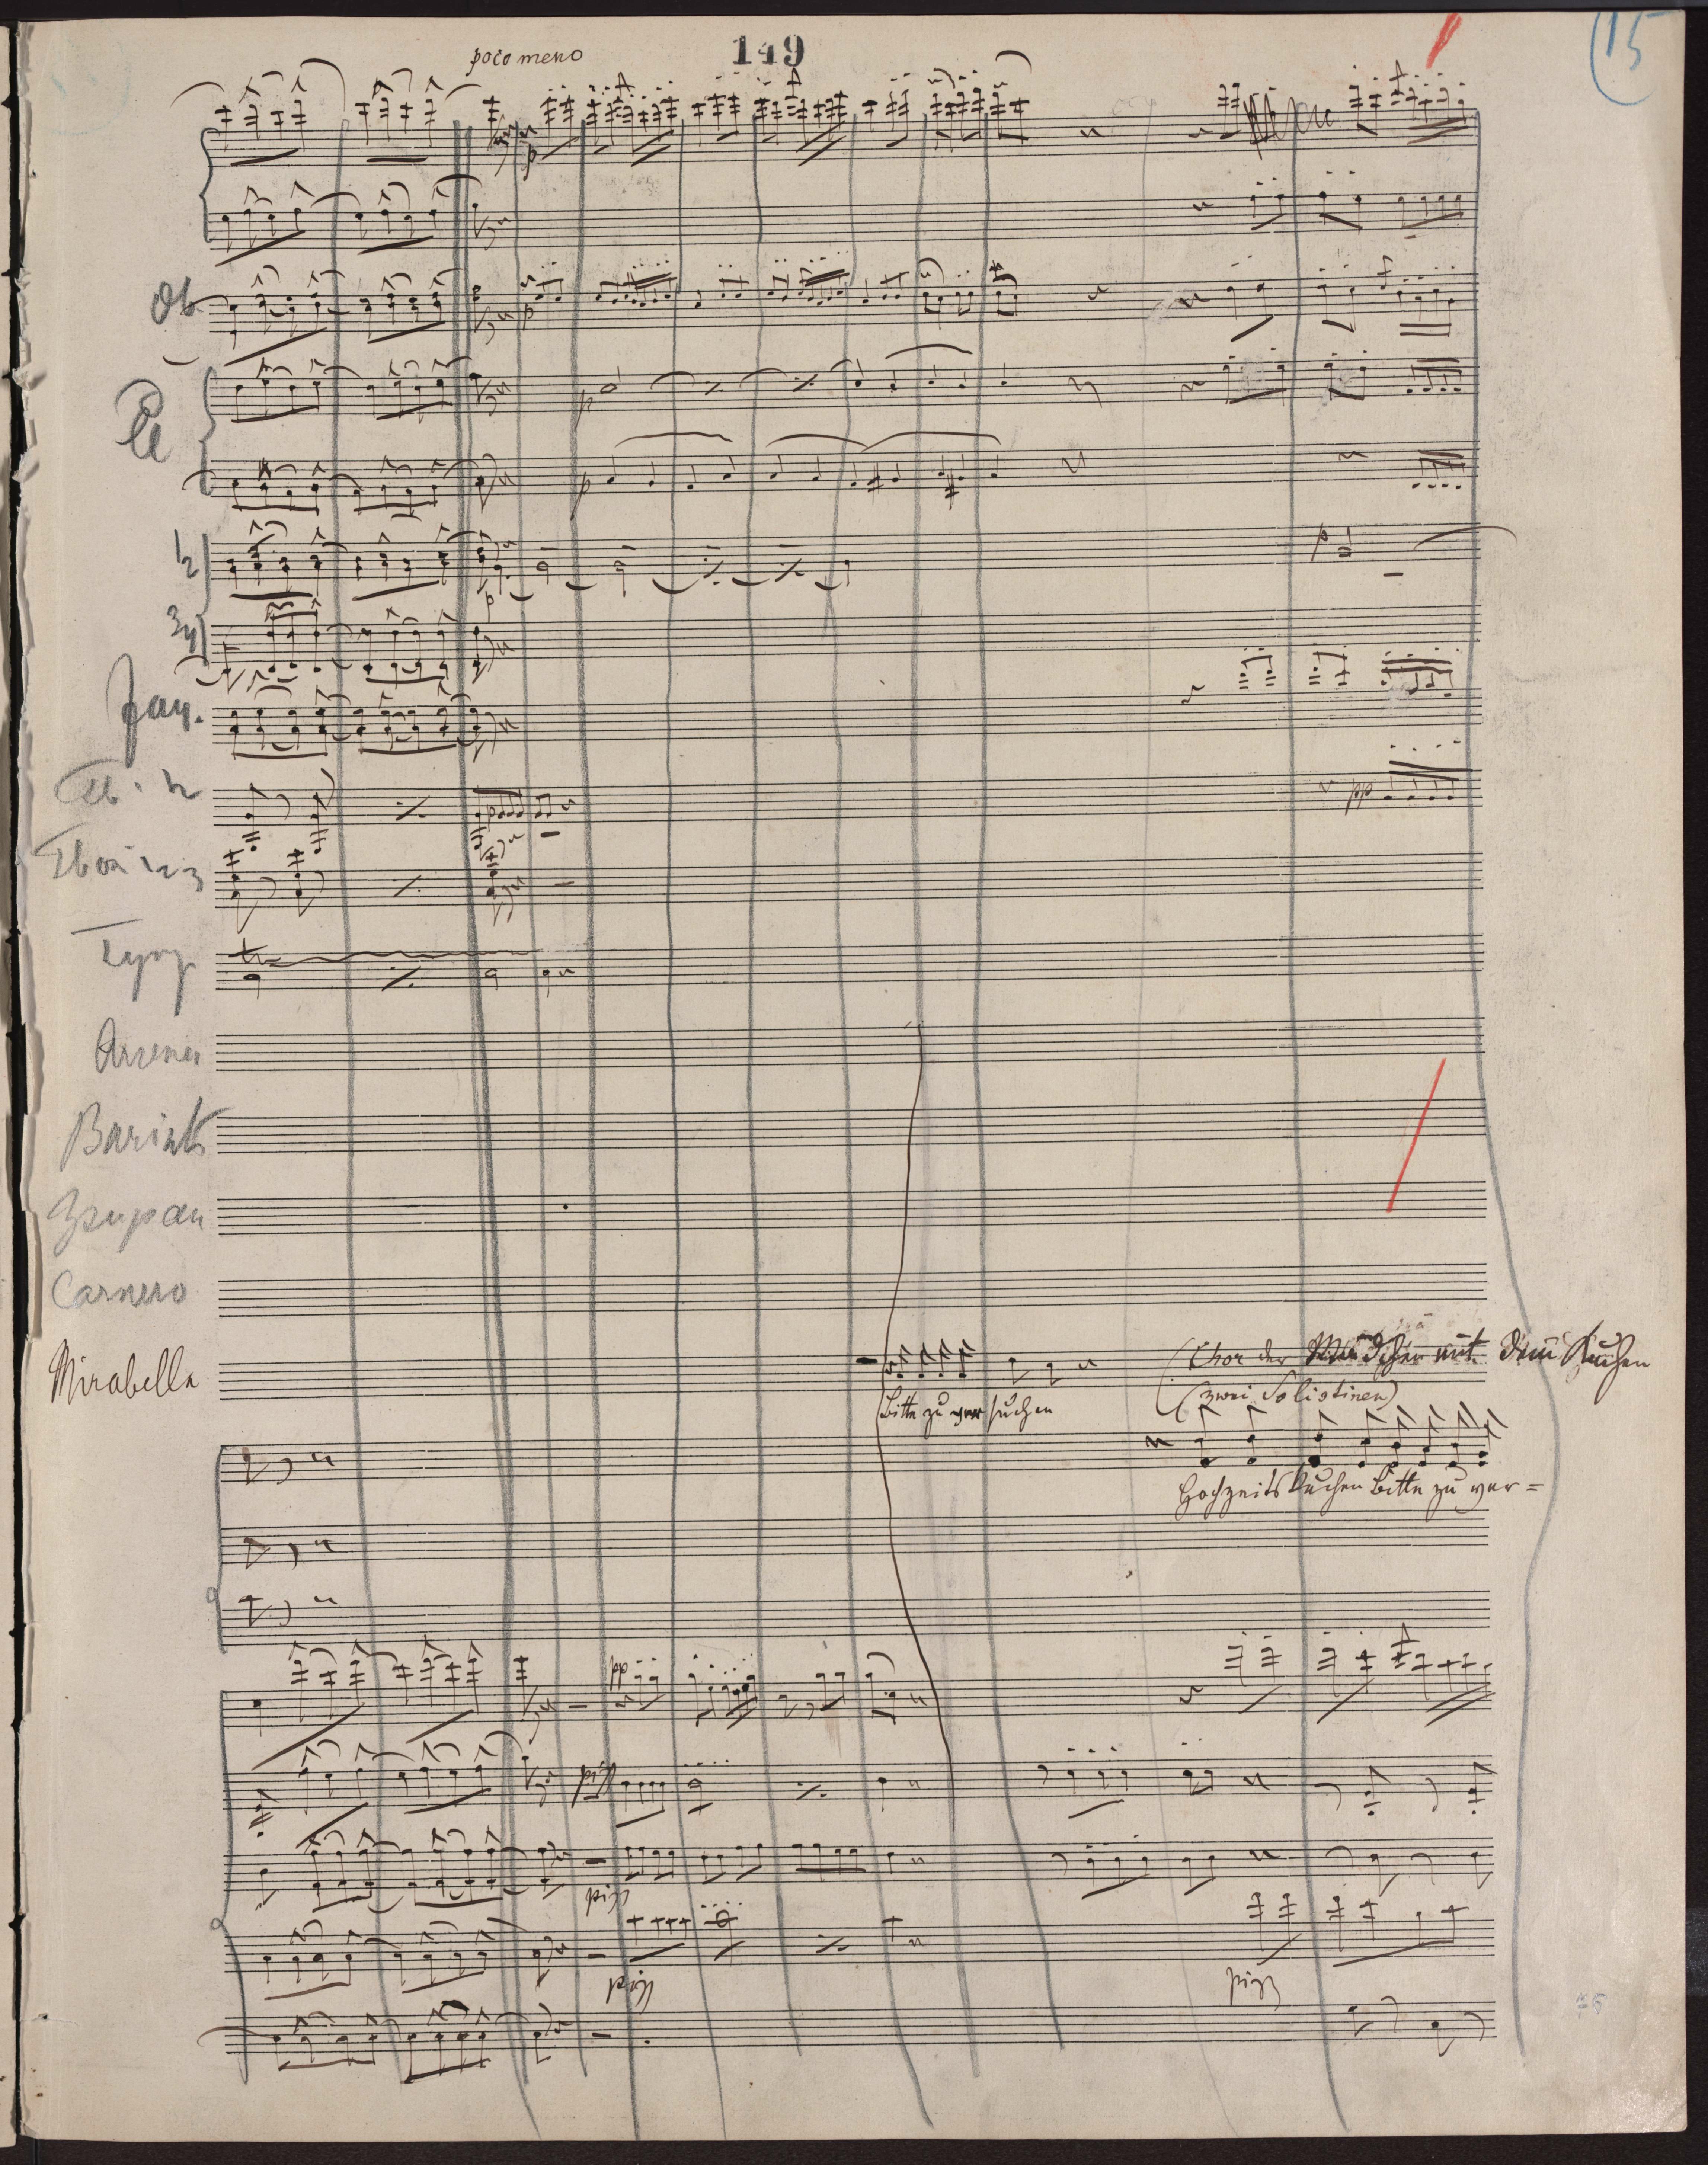 poco meno
149
15
p
Ob
p
p
p
1/2
p
p
3/4
Fag.
pp
p
Tymp
Arsena
Barink
Zsupan
Carnero
Mirabella
Bitte zu versuchen
(Chor der Mädchen mit dem Kuchen
(zwei Solistinen)
Hochzeitskuchen bitte zu ver=
pp
pizz
pizz
pizz
pizz
75